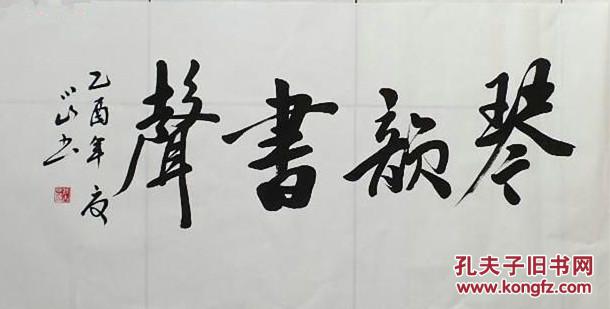 琴韵書聲
乙酉年夏
山书
孔夫子旧书网
www.kongfz.com